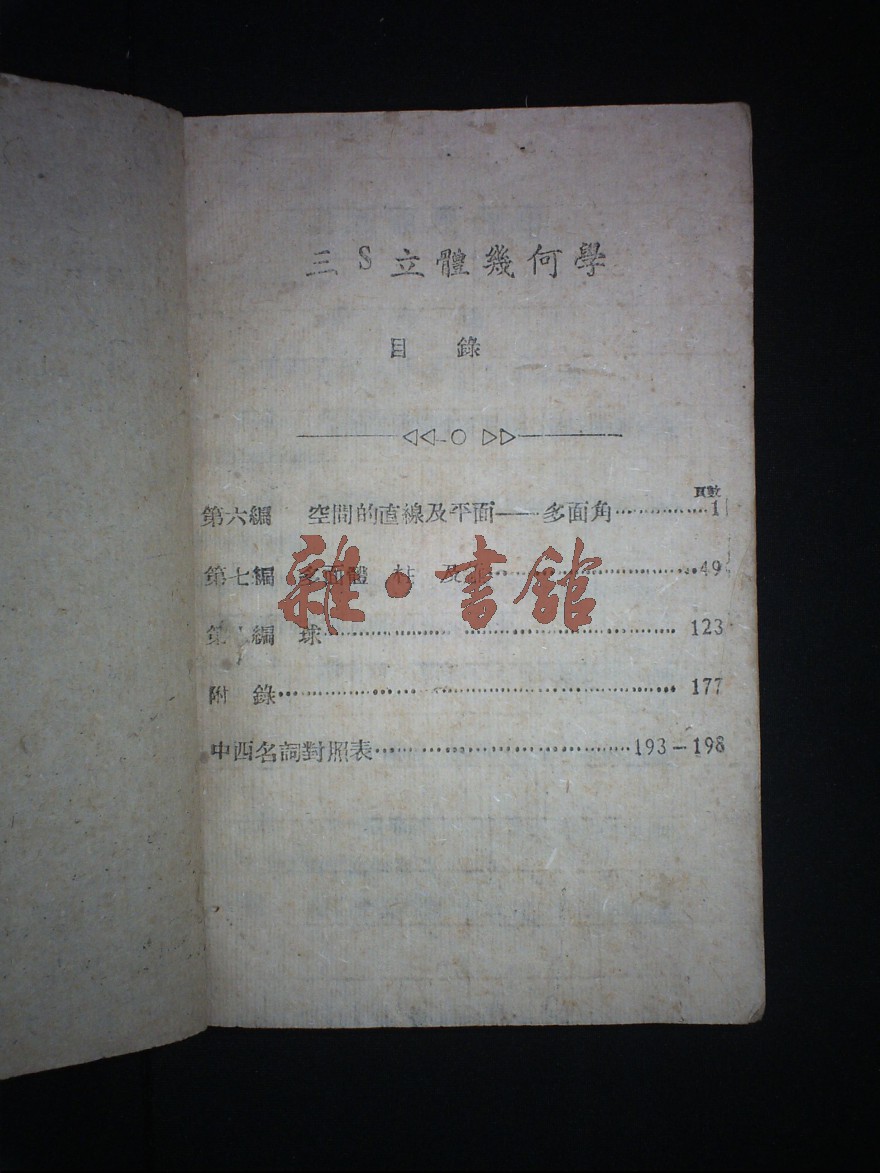 三S立體幾何學
目錄
頁數
第六編 空間的直線及平面——多面角……………1
第七編 多面體 柱 及……………49
第 編 球……………123
附錄……………177
中西名詞對照表……………193-198
雜·書館